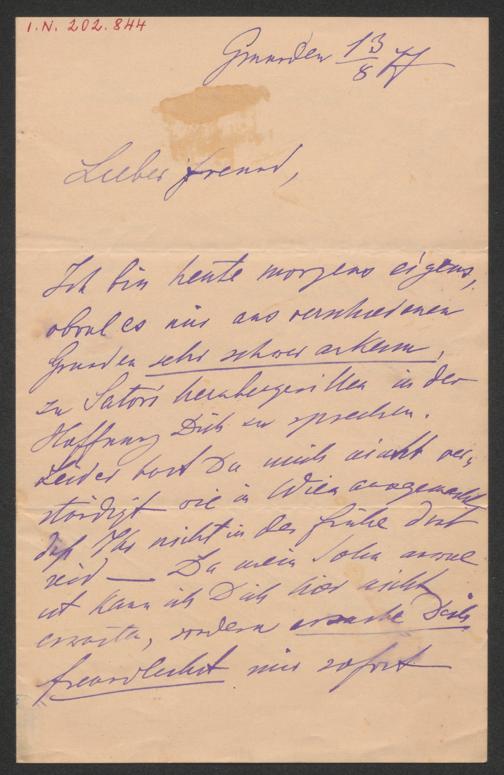 I.N. 202.844
Gmunden 13/8 77
Lieber Freund,
Ich bin heute morgens eigens,
obwol es mir aus verschiedenen
Gründen sehr schwer ankam,
zu Satori herübergeritten in der
Hoffnung Dich zu sprechen.
Leider hast Du mich nicht ver¬
ständigt wie in Wien ausgemacht
daß Ihr nicht in der Frühe dort
seid — Da mein Sohn
ist kann ich Dich hier nicht
erwarten, sondern ersuche Dich
freundlichst mir sofort